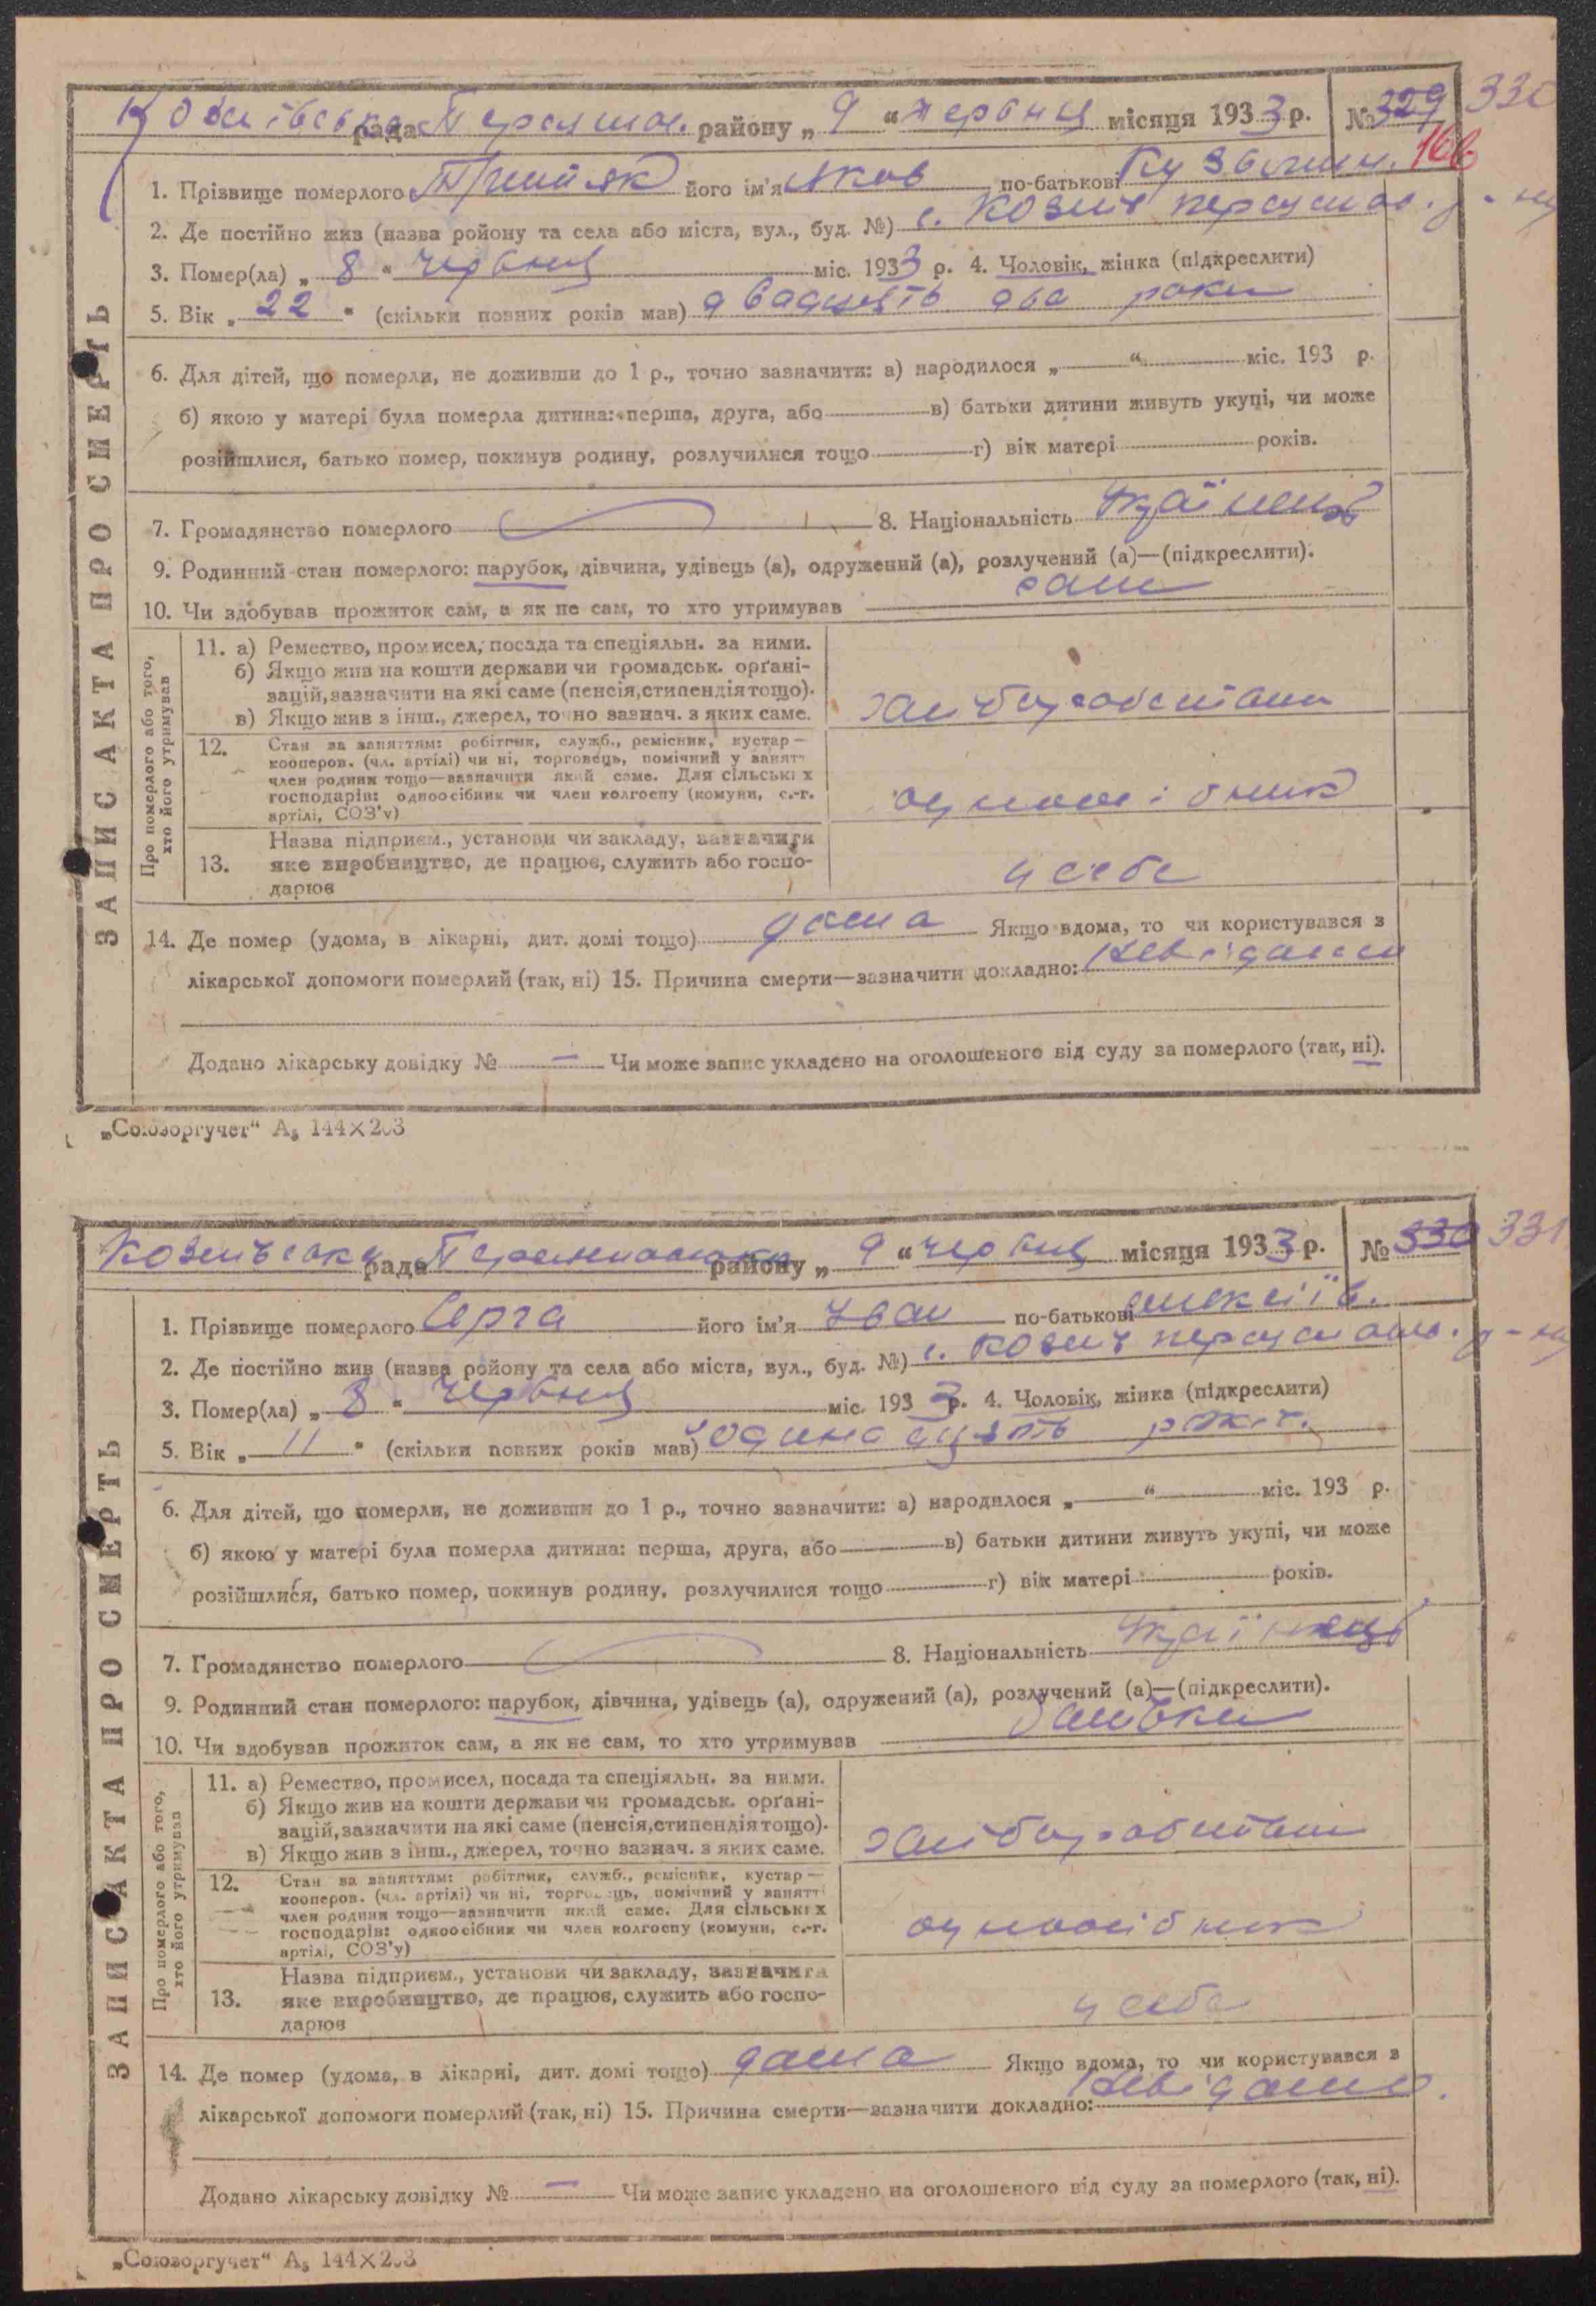 рада району „ 9 “ червня місяця 1933 р. № 329 330
166
1. Прізвище померлого його ім'я Яков по-батькові
2. Де постійно жив (назва ройону та села або міста, вул., буд. №) с. Козин
3. Помер(ла) „ 8 “ червня міс. 1933 р. 4. Чоловік, жінка (підкреслити)
5. Вік „ 22 “ (скільки повних років мав) двадцять два роки
6. Для дітей, що померли, не доживши до 1 р., точно зазначити: а) народилося „ “ міс. 193 р.
б) якою у матері була померла дитина: перша, друга, або в) батьки дитини живуть укупі, чи може
розійшлися, батько помер, покинув родину, розлучилися тощо г) вік матері років.
7. Громадянство померлого 8. Національність
9. Родинний стан померлого: парубок, дівчина, удівець (а), одружений (а), розлучений (а)—(підкреслити).
10. Чи здобував прожиток сам, а як не сам, то хто утримував сам
ЗАПИС АКТА ПРО СМЕРТЬ
Про померлого або того,
хто його утримував
11. а) Ремество, промисел, посада та спеціяльн. за ними.
б) Якщо жив на кошти держави чи громадськ. орґані-
зацій, зазначити на які саме (пенсія, стипендія тощо).
в) Якщо жив з інш., джерел, точно зазнач. з яких саме. хліборобством
12. Стан за заняттям: робітник, служб., ремісник, кустар—
кооперов. (чл. артілі) чи ні, торговець, помічний у занятт
член родини тощо—зазначити який саме. Для сільських
господарів: одноосібник чи член колгоспу (комуни, с.-г.
артілі, СОЗ'у) одноосібник
13. Назва підприєм., установи чи закладу, зазначити
яке виробництво, де працює, служить або госпо-
дарює у себе
14. Де помер (удома, в лікарні, дит. домі тощо) дома Якщо вдома, то чи користувався з
лікарської допомоги померлий (так, ні) 15. Причина смерти—зазначити докладно: невідомо
Додано лікарську довідку № — Чи може запис укладено на оголошеного від суду за померлого (так, ні).
„Союзоргучет“ А₅ 144×203
рада району „ 9 “ червня місяця 1933 р. № 330 331
1. Прізвище померлого Серга його ім'я Іван по-батькові
2. Де постійно жив (назва ройону та села або міста, вул., буд. №) с. Козин
3. Помер(ла) „ 8 “ червня міс. 1933 р. 4. Чоловік, жінка (підкреслити)
5. Вік „ 11 “ (скільки повних років мав) одинадцять
6. Для дітей, що померли, не доживши до 1 р., точно зазначити: а) народилося „ “ міс. 193 р.
б) якою у матері була померла дитина: перша, друга, або в) батьки дитини живуть укупі, чи може
розійшлися, батько помер, покинув родину, розлучилися тощо г) вік матері років.
7. Громадянство померлого 8. Національність
9. Родинний стан померлого: парубок, дівчина, удівець (а), одружений (а), розлучений (а)—(підкреслити).
10. Чи здобував прожиток сам, а як не сам, то хто утримував батьки
ЗАПИС АКТА ПРО СМЕРТЬ
Про померлого або того,
хто його утримував
11. а) Ремество, промисел, посада та спеціяльн. за ними.
б) Якщо жив на кошти держави чи громадськ. орґані-
зацій, зазначити на які саме (пенсія, стипендія тощо).
в) Якщо жив з інш., джерел, точно зазнач. з яких саме. хліборобством
12. Стан за заняттям: робітник, служб., ремісник, кустар—
кооперов. (чл. артілі) чи ні, торговець, помічний у занятті
член родини тощо—зазначити який саме. Для сільських
господарів: одноосібник чи член колгоспу (комуни, с.-г.
артілі, СОЗ'у) одноосібник
13. Назва підприєм., установи чи закладу, зазначити
яке виробництво, де працює, служить або госпо-
дарює у себе
14. Де помер (удома, в лікарні, дит. домі тощо) дома Якщо вдома, то чи користувався з
лікарської допомоги померлий (так, ні) 15. Причина смерти—зазначити докладно: невідомо.
Додано лікарську довідку № — Чи може запис укладено на оголошеного від суду за померлого (так, ні).
„Союзоргучет“ А₅ 144×203